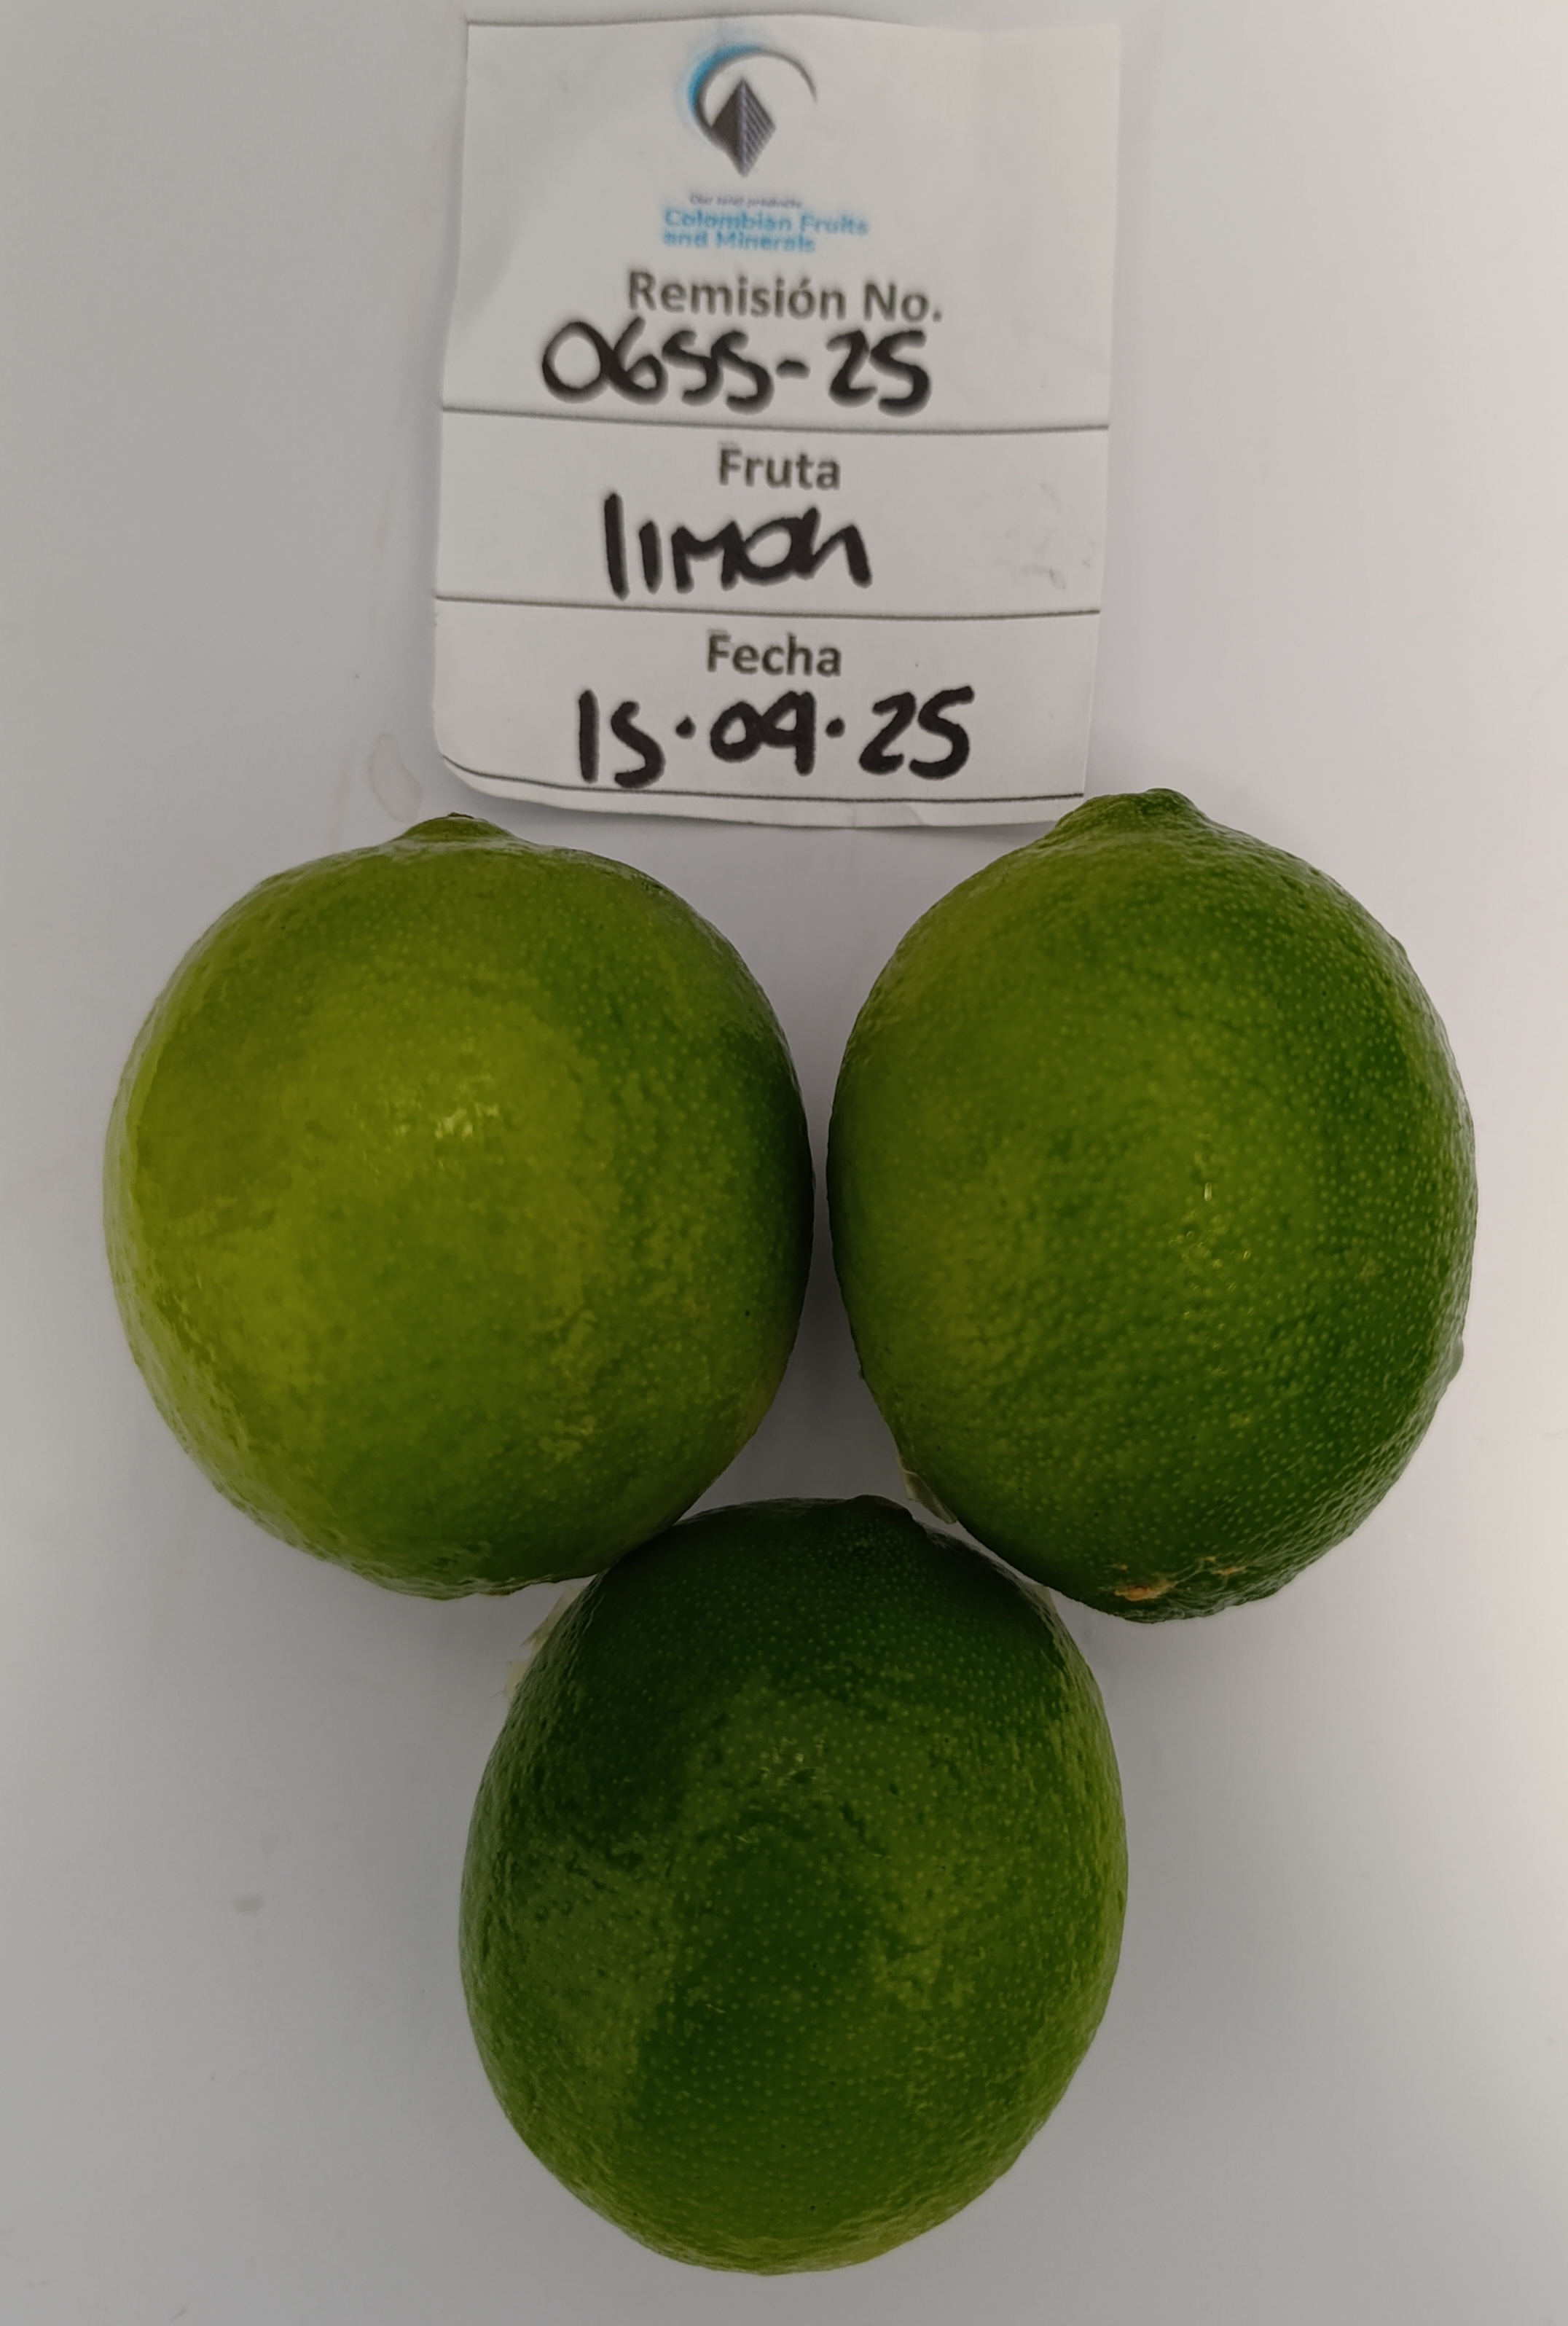 Our best products
Colombian Fruits
and Minerals
Remisión No.
0655-25
Fruta
limon
Fecha
15.09.25